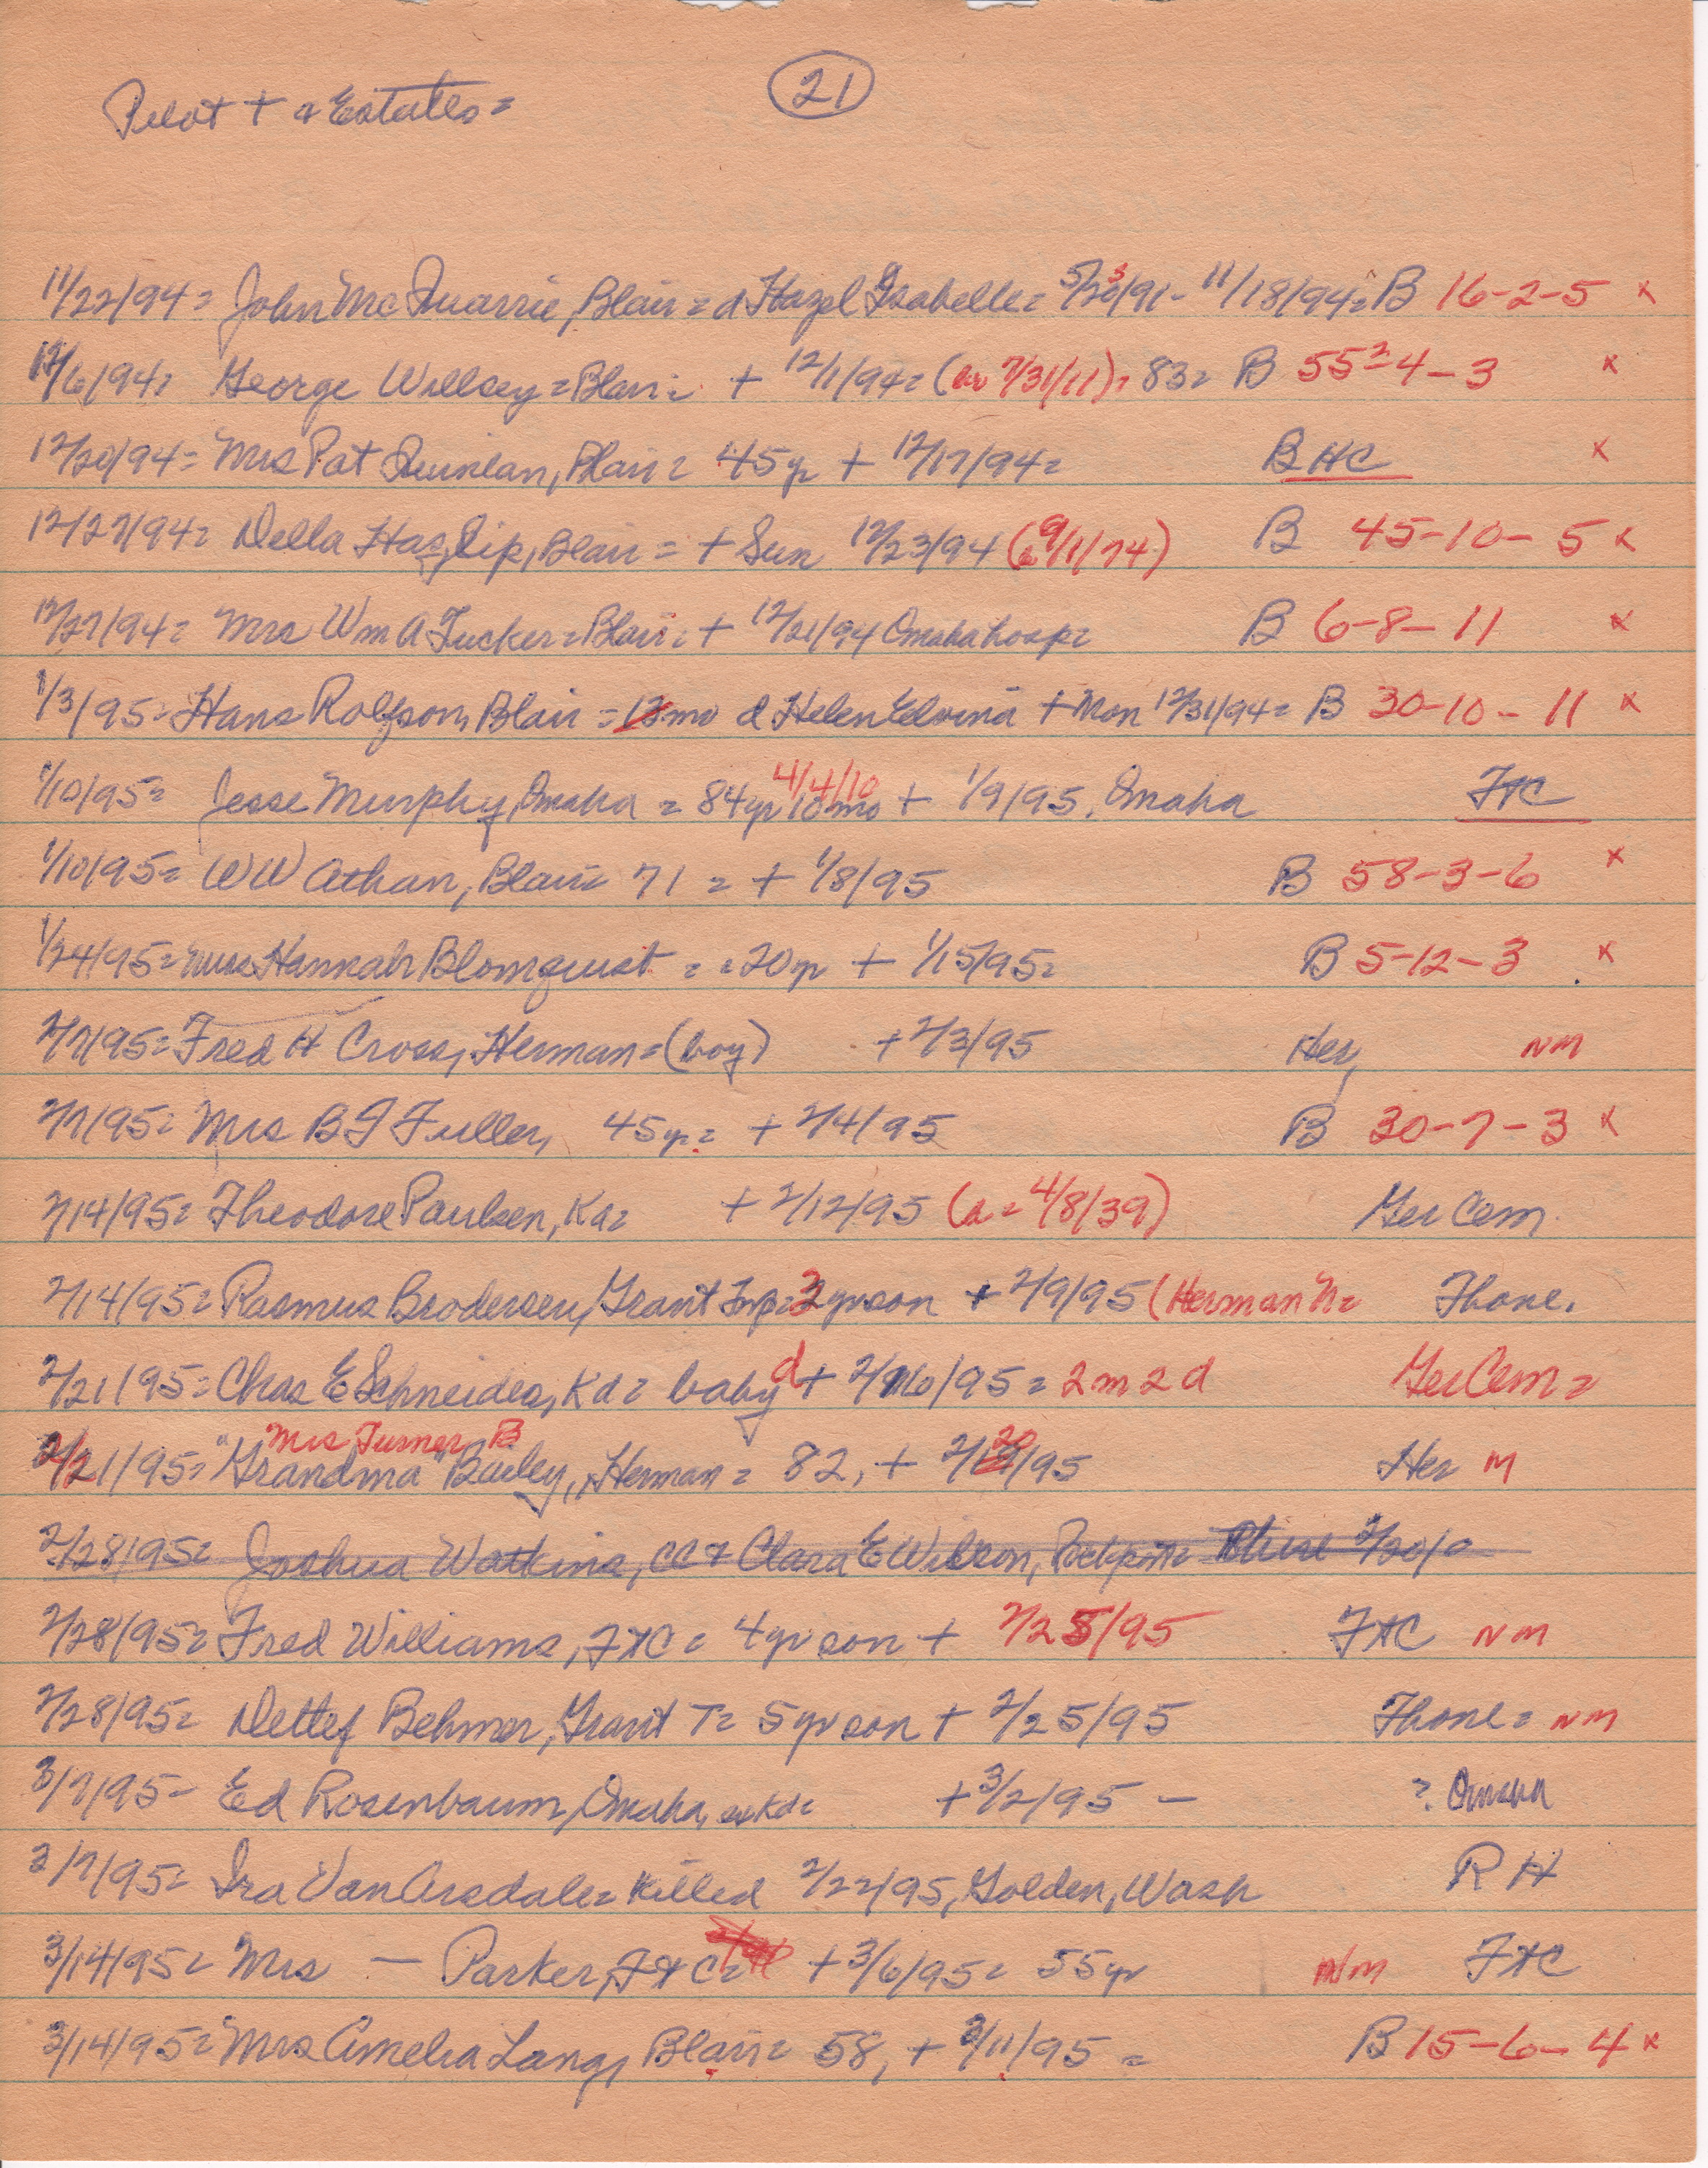 21
Pilot + & Estates =
11/22/94 = John McQuarrie, Blair = d Hazel Isabelle = 5/20/91 - 11/18/94 = B 16-2-5 x
12/6/94 = George Willsey = Blair = + 12/1/94 = ( 7/31/11) = 83 = B 55²-4-3 x
12/20/94 = Mrs Pat Quinlan, Blair = 45yr + 12/17/94 = B HC x
12/27/94 = Della Haslip, Blair = + Sun 12/23/94 (b 9/1/74) B 45-10-5 x
12/27/94 = Mrs Wm A Tucker = Blair = + 12/21/94 Omaha hosp = B 6-8-11 x
1/3/95 = Hans Rolfson, Blair = 13mo d Helen Elvina + Mon 12/31/94 = B 30-10-11 x
4/4/10
1/10/95 = Jesse Murphy, Omaha = 84yr 10mo + 1/9/95, Omaha FtC
1/10/95 = WW Athan, Blair = 71 = + 1/8/95 B 58-3-6 x
1/24/95 = Miss Hannah Blomquist = = 20yr + 1/15/95 = B 5-12-3 x
2/7/95 = Fred H Cross, Herman = (boy) + 2/3/95 Her NM
2/7/95 = Mrs B F Fuller, 45yr = + 2/4/95 B 30-7-3 x
2/14/95 = Theodore Paulsen, Kd = + 2/12/95 (a = 4/8/39) Ger Cem.
2/14/95 = Rasmus Brodersen, Grant Twp = 3yr son + 2/9/95 (Herman N = Fhone.
2/21/95 = Chas E Schneider, Kd = baby d + 2/16/95 = 2m 2d Ger Cem =
Mrs Turner B
2/21/95 = "Grandma" Bailey, Herman = 82, + 2/20/95 Her M
2/28/95 = Joshua Watkins, CC & Clara E Wilson, Rockport = 2/20/
2/28/95 = Fred Williams, FtC = 4yr son + 2/25/95 FtC NM
2/28/95 = Detlef Behmer, Grant T = 5yr son + 2/25/95 Fhone = NM
3/7/95 - Ed Rosenbaum, Omaha, ex Kd = + 3/2/95 - ? Omaha
3/7/95 = Ira VanArsdale = Killed 2/22/95, Golden, Wash R H
3/14/95 = Mrs — Parker, FtC = + 3/6/95 = 55yr NM FtC
3/14/95 = Mrs Amelia Lang, Blair = 58, + 3/11/95 = B 15-6-4 x